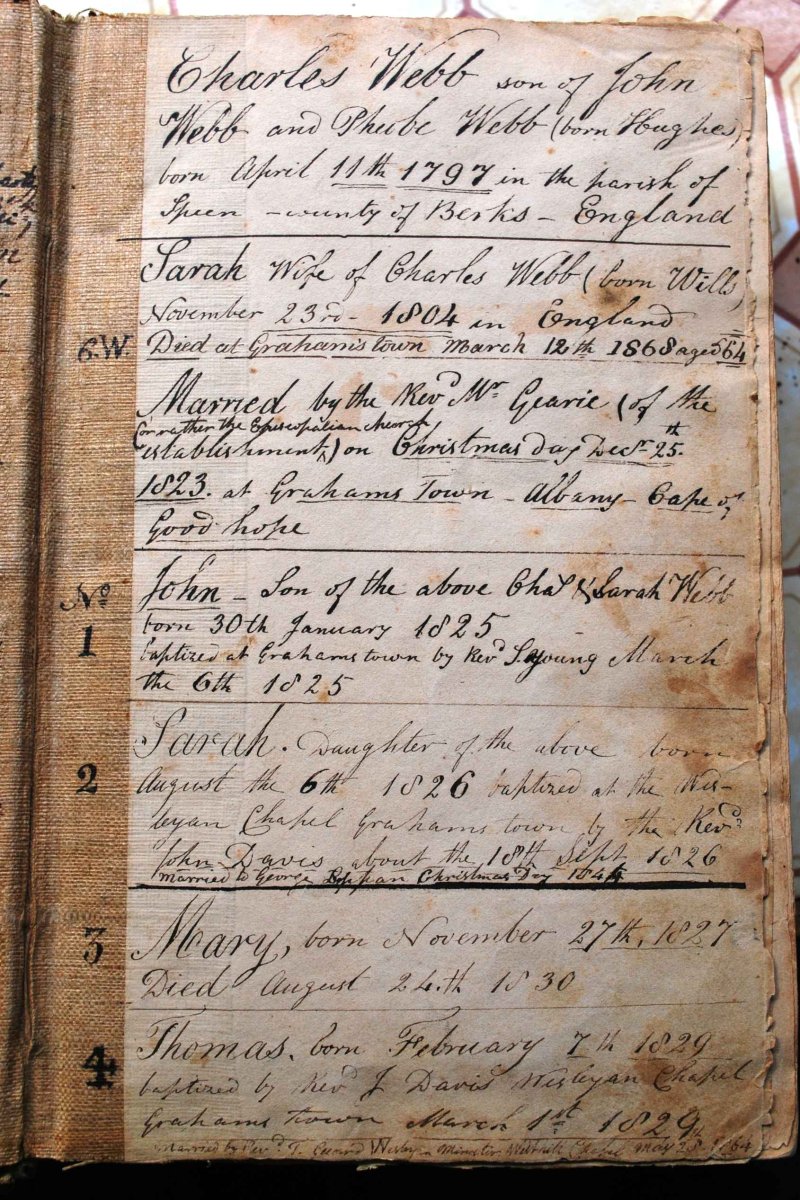 Charles Webb son of John
Webb and Phebe Webb (born Hughes)
born April 11th 1797 in the parish of
Speen - county of Berks - England
Sarah Wife of Charles Webb (born Wills)
November 23rd - 1804 in England
C.W. Died at Graham's town March 12th 1868 aged 64
Married by the Revd Mr Gearie (of the
(or rather the Episcopalian church
establishment) on Christmas day Decr 25th
1823. at Grahams Town - Albany - Cape of
Good hope
No 1
John - Son of the above Chas & Sarah Webb
born 30th January 1825
baptized at Grahams town by Revd S. Young March
the 6th 1825
2
Sarah. Daughter of the above born
August the 6th 1826 baptized at the Wes-
leyan Chapel Grahams town by the Revd
John Davis about the 18th Sept 1826
Married to George Christmas Day
3
Mary, born November 27th, 1827
Died August 24th 1830
4
Thomas. born February 7th 1829
baptized by Revd J Davis Wesleyan Chapel
Grahams Town March 1st 1829
Married by Revd T. Wesleyan Minister Chapel May 28 1864